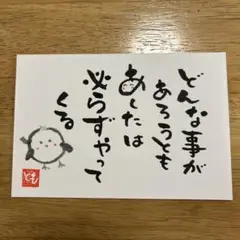 どんな事が
あろうとも
あしたは
必らずやって
くる
とも